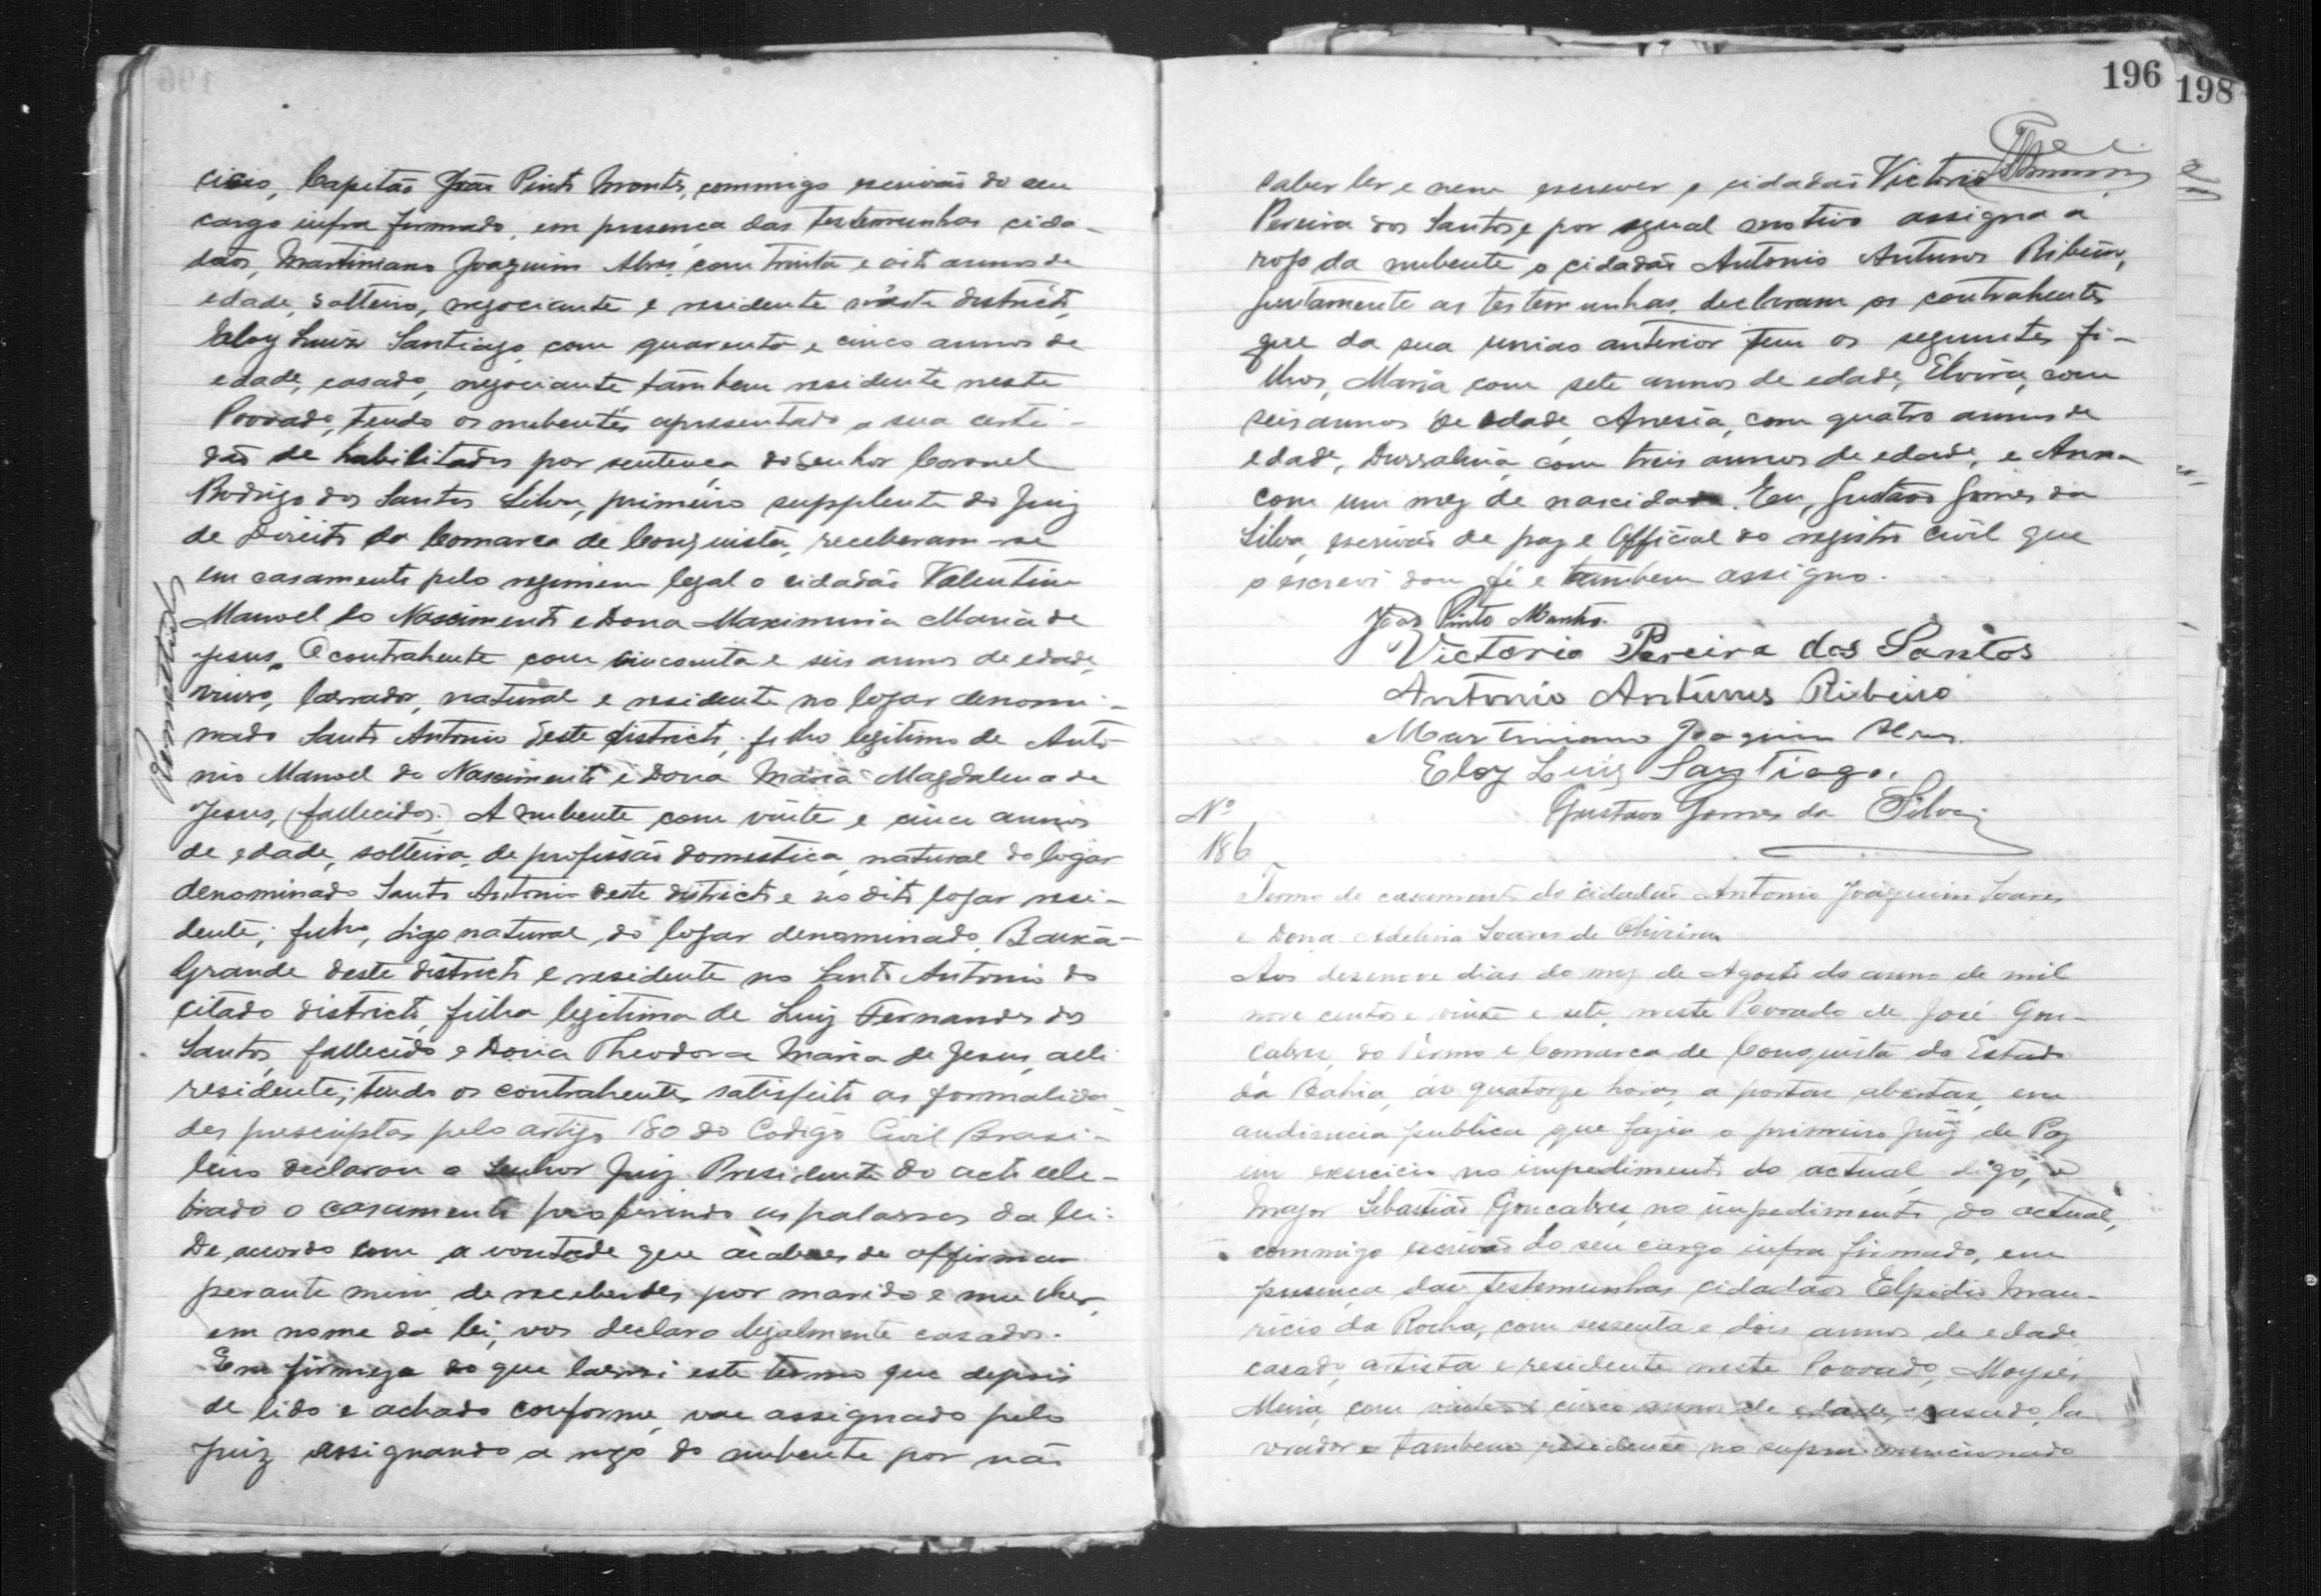 cicio, Capitão João Pinto Monts, commigo escrivão do seu
cargo infra firmado, em presença das testemunhas cida-
dãos, Martiniano Joaquim Alves, com trinta e oito annos de
edade, solteiro, negociante e residente neste districto,
Eloy Luiz Santiago, com quarenta e cinco annos de
edade, casado, negociante tambem residente neste
Povoado, tendo os nubentes apresentado a sua certi-
dão de habilitados por sentença do Senhor Coronel
Rodrigo dos Santos Silva, primeiro supplente do Juiz
de Direito da Comarca de Conquista, receberam-se
em casamento pelo regimem legal o cidadão Valentim
Manoel do Nascimento e Dona Maximina Maria de
Jesus. O contrahente com cincoenta e seis annos de edade,
viuvo, lavrador, natural e residente no logar denomi-
nado Santo Antonio deste districto, filho legitimo de Anto-
nio Manoel do Nascimento e Dona Maria Magdalena de
Jesus, (fallecidos). A nubente com vinte e cinco annos
de edade, solteira, de profissão domestica, natural do logar
denominado Santo Antonio deste districto e no dito logar resi-
dente; filha, digo natural do logar denominado Baixa-
Grande deste districto e residente no Santo Antonio do
citado districto, filha legitima de Luiz Fernandes dos
Santos, fallecido e Dona Theodora Maria de Jesus, alli
residente; tendo os contrahentes satisfeito as formalida-
des prescriptas pelo artigo 180 do Codigo Civil Brasi-
leiro declarou o Senhor Juiz Presidente do acto cele-
brado o casamento proferindo as palavras da lei:
De acordo com a vontade que acabaes de affirmar
perante mim, de receberdes por marido e mulher,
em nome da lei, vos declaro legalmente casados.
Em firmeza do que lavrei este termo que depois
de lido e achado conforme, vae assignado pelo
Juiz assignando a rogo do nubente por não
Remettido
196
198
saber ler e nem escrever o cidadão Victorio
Pereira dos Santos, e por egual motivo assigna a
rogo da nubente o cidadão Antonio Antunes Ribeiro,
juntamente as testemunhas, declaram os contrahentes
que da sua união anterior tem os seguintes fi-
lhos, Maria com sete annos de edade, Elvira, com
seis annos de edade, Anesia, com quatro annos de
edade, Durvalina com tres annos de edade, e Anna
com um mez de nascida. Eu, Gustavo Gomes da
Silva, escrivão de paz e Official do registro civil que
o escrevi dou fé e tambem assigno.
João Pinto Monts.
Victorio Pereira dos Santos
Antonio Antunes Ribeiro
Martiniano Joaquim Alves.
Eloy Luiz Santiago.
Gustavo Gomes da Silva
Nº
186
Termo de casamento do cidadão Antonio Joaquim Soares
e Dona Adelina Soares de Oliveira
Aos desenove dias do mez de Agosto do anno de mil
nove centos e vinte e sete, neste Povoado de José Gon-
çalves, do Termo e Comarca de Conquista do Estado
da Bahia, ás quatorze horas, a portas abertas, em
audiencia publica que fazia o primeiro Juiz de Paz
em exercicio no impedimento do actual, digo, o
Major Sebastião Goncalves, no impedimento do actual,
commigo escrivão do seu cargo infra firmado, em
presença das testemunhas cidadãos Elpidio Mau-
ricio da Rocha, com sessenta e dois annos de edade
casado, artista e residente neste Povoado, Moysés
Meira, com vinte e cinco annos de edade, casado, la-
vrador e tambem residente no supra mencionado